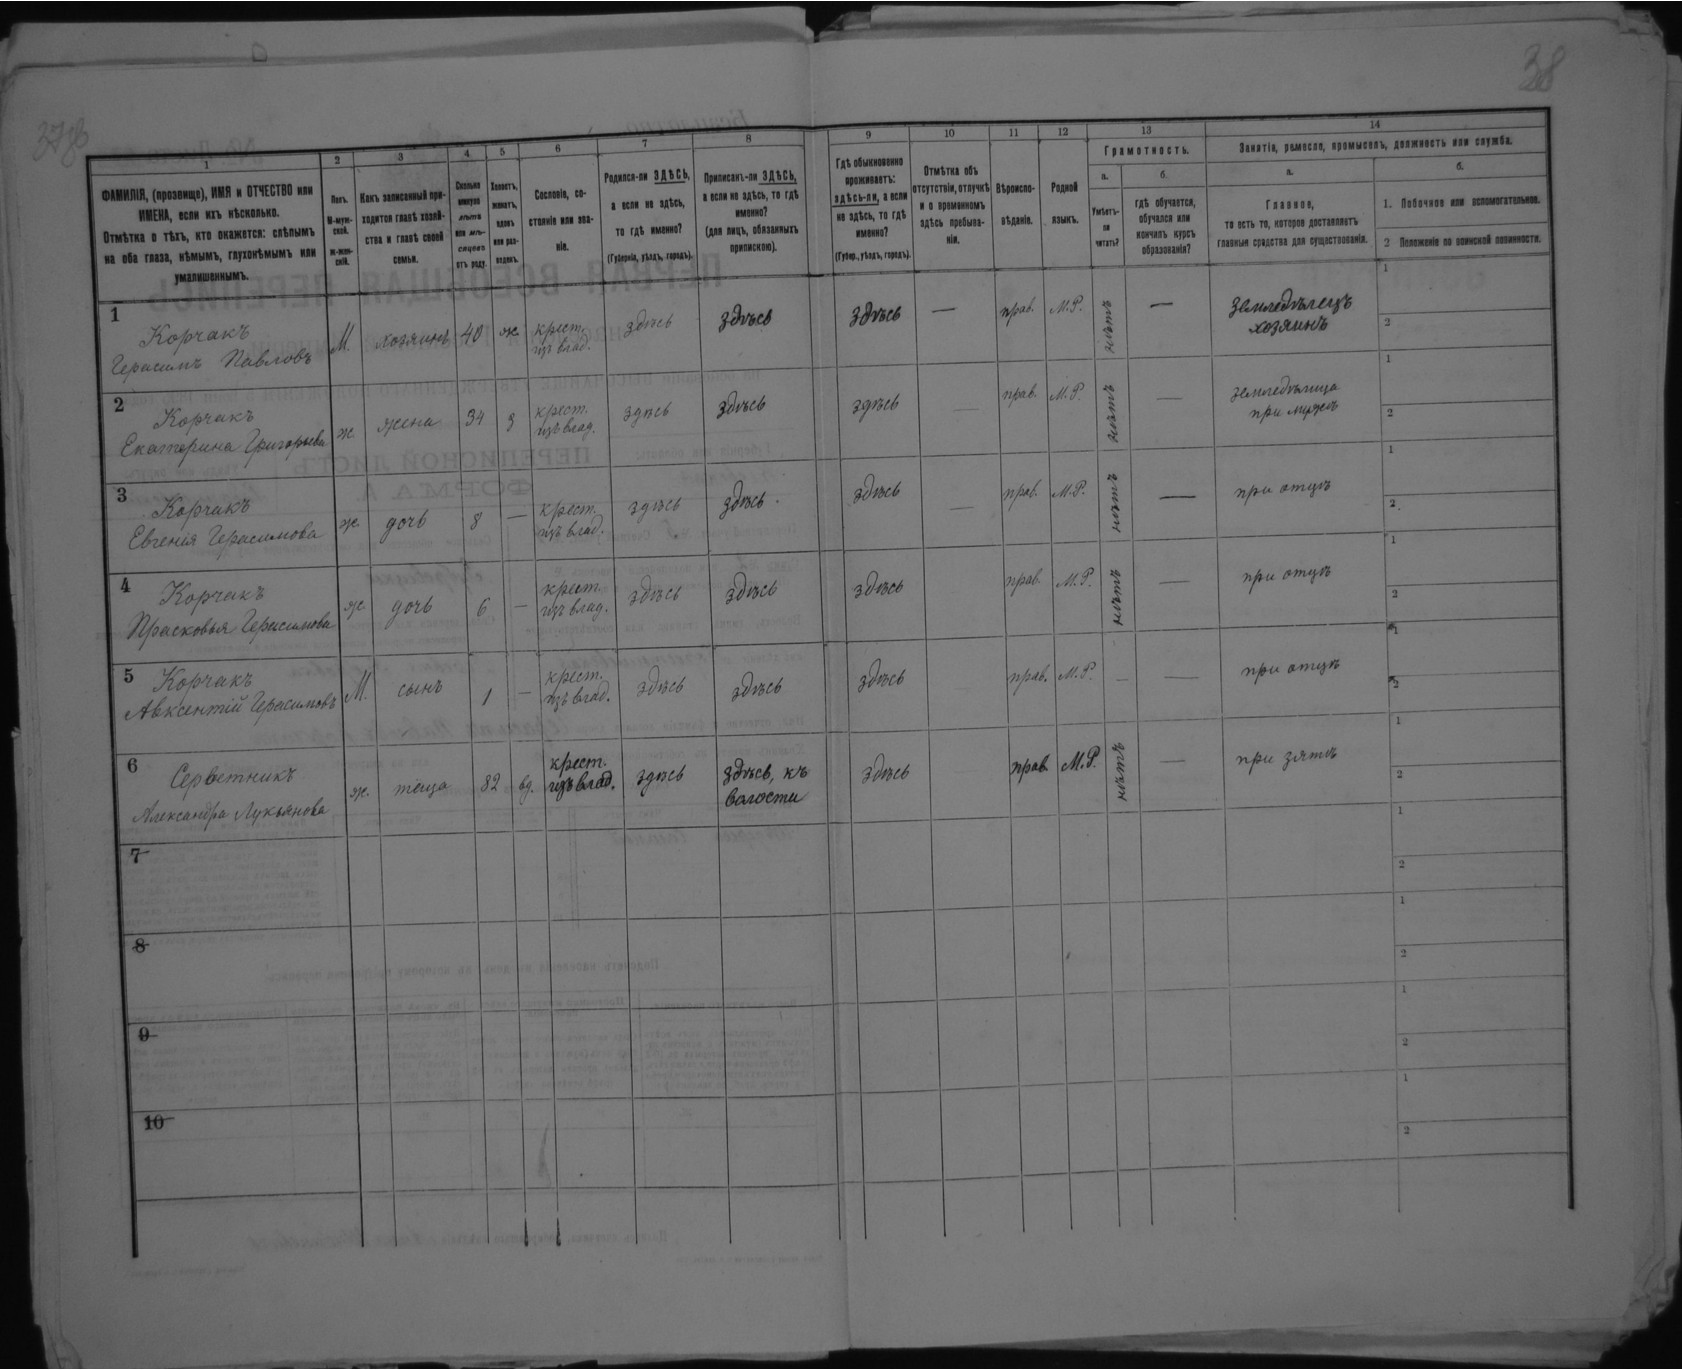 38
1 2 3 4 5 6 7 8 9 10 11 12 13 14
ФАМИЛІЯ, (прозвище), ИМЯ и ОТЧЕСТВО или
ИМЕНА, если ихъ нѣсколько.
Отмѣтка о тѣхъ, кто окажется: слѣпымъ
на оба глаза, нѣмымъ, глухонѣмымъ или
умалишеннымъ.
Полъ.
М-муж-
ской.
Ж-жен-
скій.
Какъ записанный при-
ходится главѣ хозяй-
ства и главѣ своей
семьи.
Сколько
минуло
лѣтъ
или мѣ-
сяцевъ
отъ роду.
Холостъ,
женатъ,
вдовъ
или раз-
веденъ.
Сословіе, со-
стояніе или зва-
ніе.
Родился-ли ЗДѢСЬ,
а если не здѣсь,
то гдѣ именно?
(Губернія, уѣздъ, городъ).
Приписанъ-ли ЗДѢСЬ,
а если не здѣсь, то гдѣ
именно?
(для лицъ, обязанныхъ
припискою).
Гдѣ обыкновенно
проживаетъ:
здѣсь-ли, а если
не здѣсь, то гдѣ
именно?
(Губер., уѣздъ, городъ).
Отмѣтка объ
отсутствіи, отлучкѣ
и о временномъ
здѣсь пребыва-
ніи.
Вѣроиспо-
вѣданіе.
Родной
языкъ.
Грамотность.
а.
Умѣетъ-
ли
читать?
б.
гдѣ обучается,
обучался или
кончилъ курсъ
образованія?
Занятіе, ремесло, промыселъ, должность или служба.
а.
Главное,
то есть то, которое доставляетъ
главныя средства для существованія.
б.
1. Побочное или вспомогательное.
2 Положеніе по воинской повинности.
1 Корчакъ
Герасимъ Павловъ М. хозяинъ 40 ж. крест. изъ влад. здѣсь здѣсь здѣсь — прав. М.Р. нѣтъ — земледѣлецъ хозяинъ 1 2
2 Корчакъ
Екатерина Григорьева ж. жена 34 з крест. изъ влад. здѣсь здѣсь здѣсь — прав. М.Р. нѣтъ — земледѣлица при мужѣ 1 2
3 Корчакъ
Евгенія Герасимова ж. дочь 8 — крест. изъ влад. здѣсь здѣсь. здѣсь — прав. М.Р. нѣтъ — при отцѣ 1 2
4 Корчакъ
Прасковья Герасимова ж. дочь 6 — крест. изъ влад. здѣсь здѣсь здѣсь прав. М.Р. нѣтъ — при отцѣ 1 2
5 Корчакъ
Авксентій Герасимовъ М. сынъ 1 — крест. изъ влад. здѣсь здѣсь здѣсь — прав. М.Р. — — при отцѣ 1 2
6 Серветникъ
Александра Лукьянова ж. теща 82 вд. крест. изъ влад. здѣсь здѣсь, къ волости здѣсь прав. М.Р. нѣтъ — при зятѣ 1 2
7 1 2
8 1 2
9 1 2
10 1 2